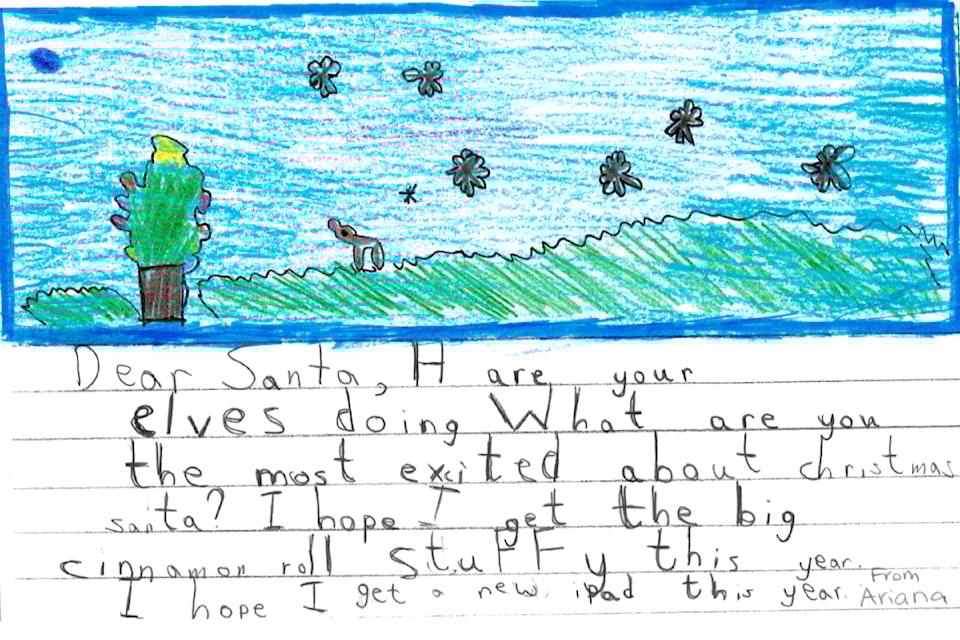 Dear Santa, H are your
elves doing What are you
the most excited about christmas
santa? I hope I get the big
cinnamon roll stuFFy this year.
I hope I get a new ipad this year. From
Ariana